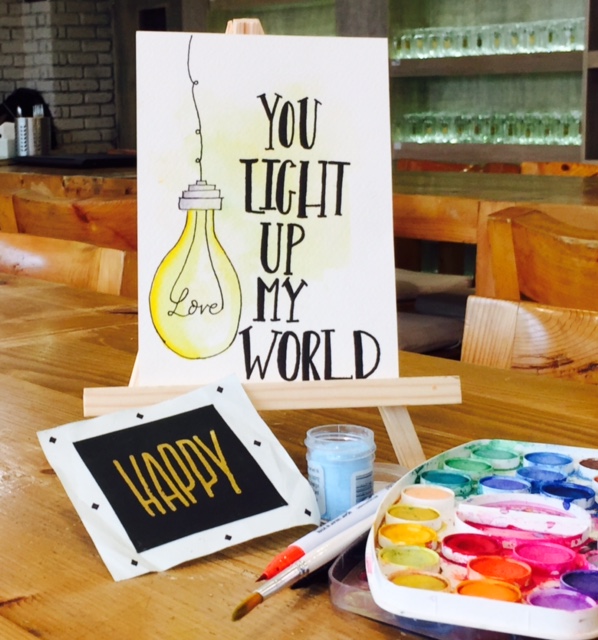 YOU
LIGHT
UP
MY
WORLD
Love
HAPPY